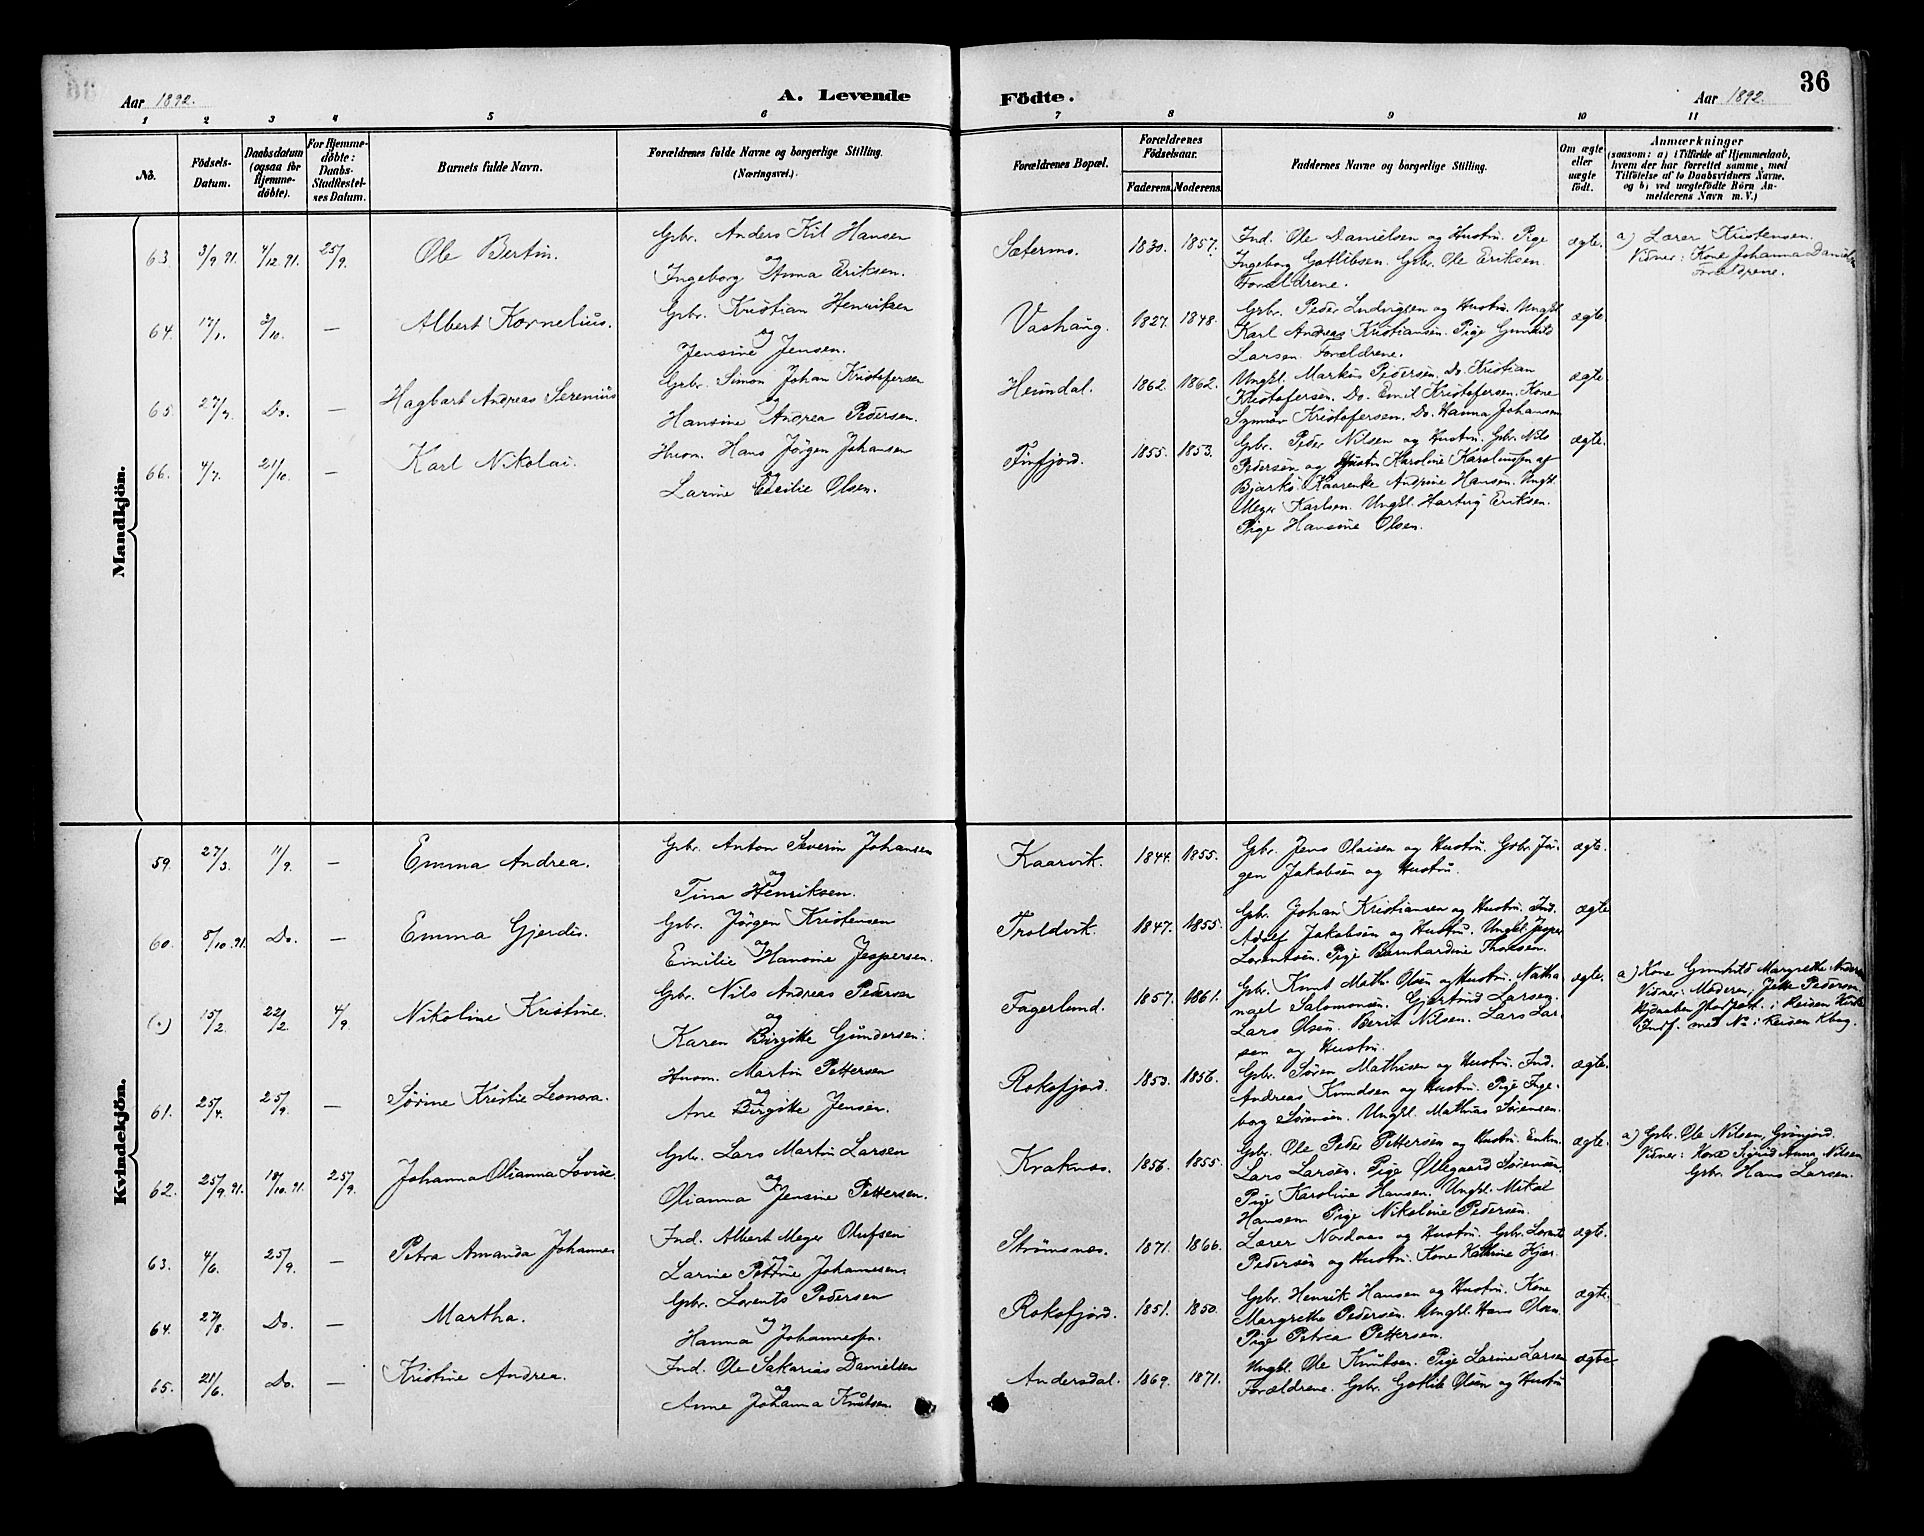 36
Aar 1892. A. Levende Födte. Aar 1892.
1 2 3 4 5 6 7 8 9 10 11
No. Födsels-Datum. Daabsdatum (ogsaa for Hjemmedöbte). For Hjemmedöbte: Daabs-Stadfæstelses Datum. Barnets fulde Navn. Forældrenes fulde Navne og borgerlige Stilling. (Næringsvei.) Forældrenes Bopæl. Forældrenes Födselsaar. Faderens. Moderens. Faddernes Navne og borgerlige Stilling. Om ægte eller uægte födt. Anmærkninger
(saasom: a) i Tilfælde af Hjemmedaab,
hvem der har forrettet samme, med
Tilföielse af to Daabsvidners Navne,
og b) ved uægtefödte Börn Anmelderens Navn m. V.)
Mandkjön.
63. 3/9 91. 4/12 91. 25/9. Ole Bertin. Gbr. Anders Kil Hansen
og
Ingeborg Anna Eriksen. Sæternes. 1830. 1857. Ind. Ole Danielsen og Hustru. Pige
Ingeborg Gotlibsen. Gbr. Ole Eriksen
Forældrene. ægte. a) Lærer Kristensen.
Vidner: Kone Johanna Daniels
Forældrene.
64. 17/1. 2/10. — Albert Kornelius. Gbr. Kristian Henriksen
og
Jensine Jensen. Vashaug. 1827. 1848. Gbr. Peder Ludvigsen og Hustru. Ungkl.
Karl Andreas Kristiansen. Pige Gunhild
Larsen. Forældrene. ægte.
65. 27/7. Do. — Hagbart Andreas Serenius Gbr. Simon Johan Kristofersen
og
Hansine Andrea Pedersen. Heimdal. 1862. 1862. Ungkl. Markus Pedersen. Do. Kristian
Kristofersen. Do. Emil Kristofersen. Kone
Synnøv Kristofersen. Do. Hanna Johansen ægte
66. 4/7. 21/10. — Karl Nikolai. Husm. Hans Jørgen Johansen
og
Larine Cecilie Olsen. Finfjord. 1855. 1853. Gbr. Peder Nilsen og Hustru. Gbr. Nils
Pedersen og Hustru Karoline Karolinssen af
Bjarkö. Kaarenke Andrine Hansen. Ungkl.
Meyer Karlsen. Ungkl. Hartvig Eriksen.
Pige Hansine Olsen. ægte.
Kvindekjön.
59. 27/3. 11/9. — Emma Andrea. Gbr. Anton Severin Johansen
og
Tina Henriksen. Kaarvik. 1844. 1855. Gbr. Jens Olaisen og Hustru. Gbr. Jør-
gen Jakobsen og Hustru. ægte.
60. 8/10 91. Do. — Emma Gjerdis. Gbr. Jørgen Kristensen
og
Emilie Hansine Jespersen. Troldvik. 1847. 1855. Gbr. Johan Kristiansen og Hustru. Ind.
Adolf Jakobsen og Hustru. Ungkl. Jesper
Lorentsen. Pige Bernhardine Thoresen. ægte
(.) 15/2. 22/2. 4/9. Nikoline Kristine. Gbr. Nils Andreas Pedersen
og
Karen Birgitte Gundersen. Fagerlund. 1857. 1861. Gbr. Knut Math. Olsen og Hustru. Natha-
nael Salomonsen. Gjertrud Larsen.
Lars Olsen. Berit Nilsen. Lars Lar-
sen og Hustru. ægte. a) Kone Gunhild Margrethe Anders
Vidner: Moderen, Jette Pederson.
Hjdaaben Stadfæst. i Reisen Kirke
Indf. med No i Reisen Kbog.
61. 25/4. 25/9. — Sørine Kristie Leonora. Husm. Martin Pettersen
og
Ane Birgitte Jensen. Rokofjord. 1850. 1856. Gbr. Søren Mathisen og Hustru. Ind.
Andreas Knudsen og Hustru. Pige Inge-
borg Sørensen. Ungkl. Mathias Sørensen. ægte.
62. 25/9 91. 18/10 91. 25/9. Johanna Olianna Lovise Gbr. Lars Martin Larsen
og
Olianna Jensine Pettersen. Kraknes. 1856. 1855. Gbr. Ole Peder Pettersen og Hustru. Enkm.
Lars Larsen. Pige Øllegaard Sørensen.
Pige Karoline Hansen. Ungkl. Mikal
Hansen. Pige Nikoline Pedersen. ægte. a) Gbr. Ole Nilsen, Grunjord.
Vidner: Kone Sigrid Anna Nilsen
Gbr. Hans Larsen.
63. 4/6. 25/9. — Petra Amanda Johannes Ind. Albert Meyer Olufsen
og
Larine Petrine Johannesen. Strømsnes. 1871. 1866. Lærer Nordaas og Hustru. Gbr. Lorents
Pedersen og Hustru. Kone Kathrine Hjær. ægte.
64. 27/8. Do. — Martha. Gbr. Lorents Pedersen
og
Hanna Johannessen. Rokofjord. 1851. 1850. Gbr. Henrik Hansen og Hustru. Kone
Margrethe Pedersen. Ungkl. Hans Olsen.
Pige Petrea Pettersen. ægte.
65. 21/6. Do. — Kristine Andrea. Ind. Ole Sakarias Danielsen
og
Anne Johanna Knutsen. Andersdal. 1869. 1871. Ungkl. Ole Knutsen. Pige Larine Larsen
Forældrene. Gbr. Gotlib Olsen og Hustru ægte